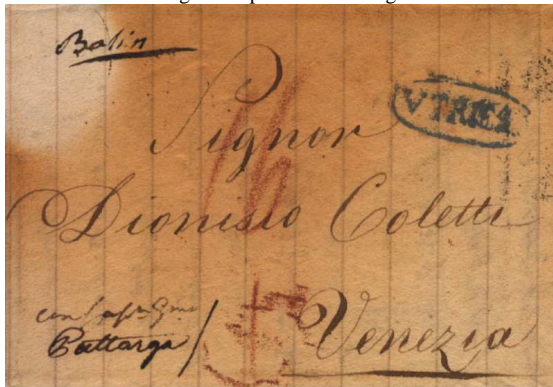 Bolin
Signor
16
Dionisio Coletti
con
Pattarga
Venezia